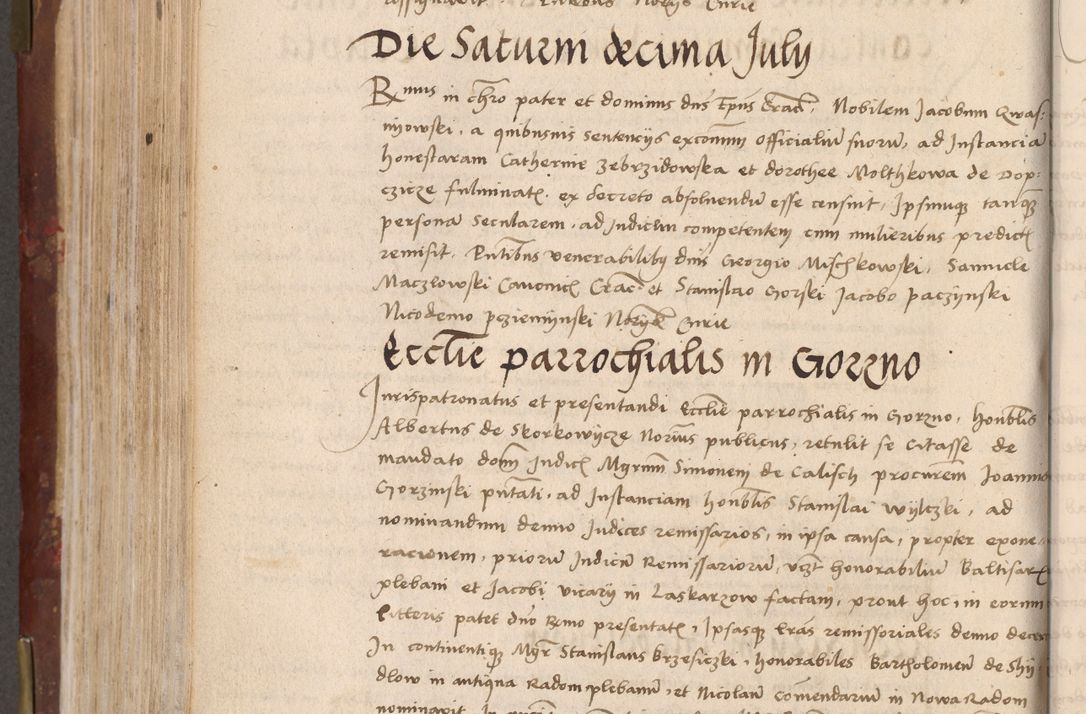 Die Saturni decima July
Rmus in chro pater et dominus dns Epus Crac. Nobilem Jacobum Qwas-
niyowski, a quibusuis sentencijs excomm officialiu suoru, ad Instancia
honestaram Catherine Zebrzidowska et dorothee Molthkowa de Dop-
czicze fulminat. ex decreto absoluendu esse censuit, Ipsumq tanq
persona Secularem, ad Judiciu competentem cum mulieribus predict
remisit. Pntibus venerabilibq dnis Georgio Mischkowski, Samuele
Maczlowski Canonic Crac et Stanislao Gorski Jacobo paczijnski
Nicodemo pcziemijnski Notrijs Curie
Ecclie parrochialis in Gorzno
Jurispatronatus et presentandi Ecclie parrochialis in Gorzno, honblis
Albertus de Skorkowijcze Norius publicus, retulit se Citasse de
mandato dom Judic Mgrum Simonem de Calisch procurem Joannis
Gorzinski pntati, ad Instanciam honblis Stanislai Wijlczki, ad
nominandum denuo Judices remissarios, in ipsa causa, propter exone-
racionem, prioru Judicu Remissarioru, vczt honorabiliu Baltisar
plebani et Jacobi vicarij in Laskarzow factam, prout hoc, in eorum
Litteris patet dno Rmo presentat, Ipsasq Lras remissoriales denuo decer
In continentiq Mgr Stanislaus brzesiczki, honorabiles Bartholomeu de Shij-
dlow in antiqua Radom plebanu, et Nicolau Comendariu in Nowa Radom
nominavit.